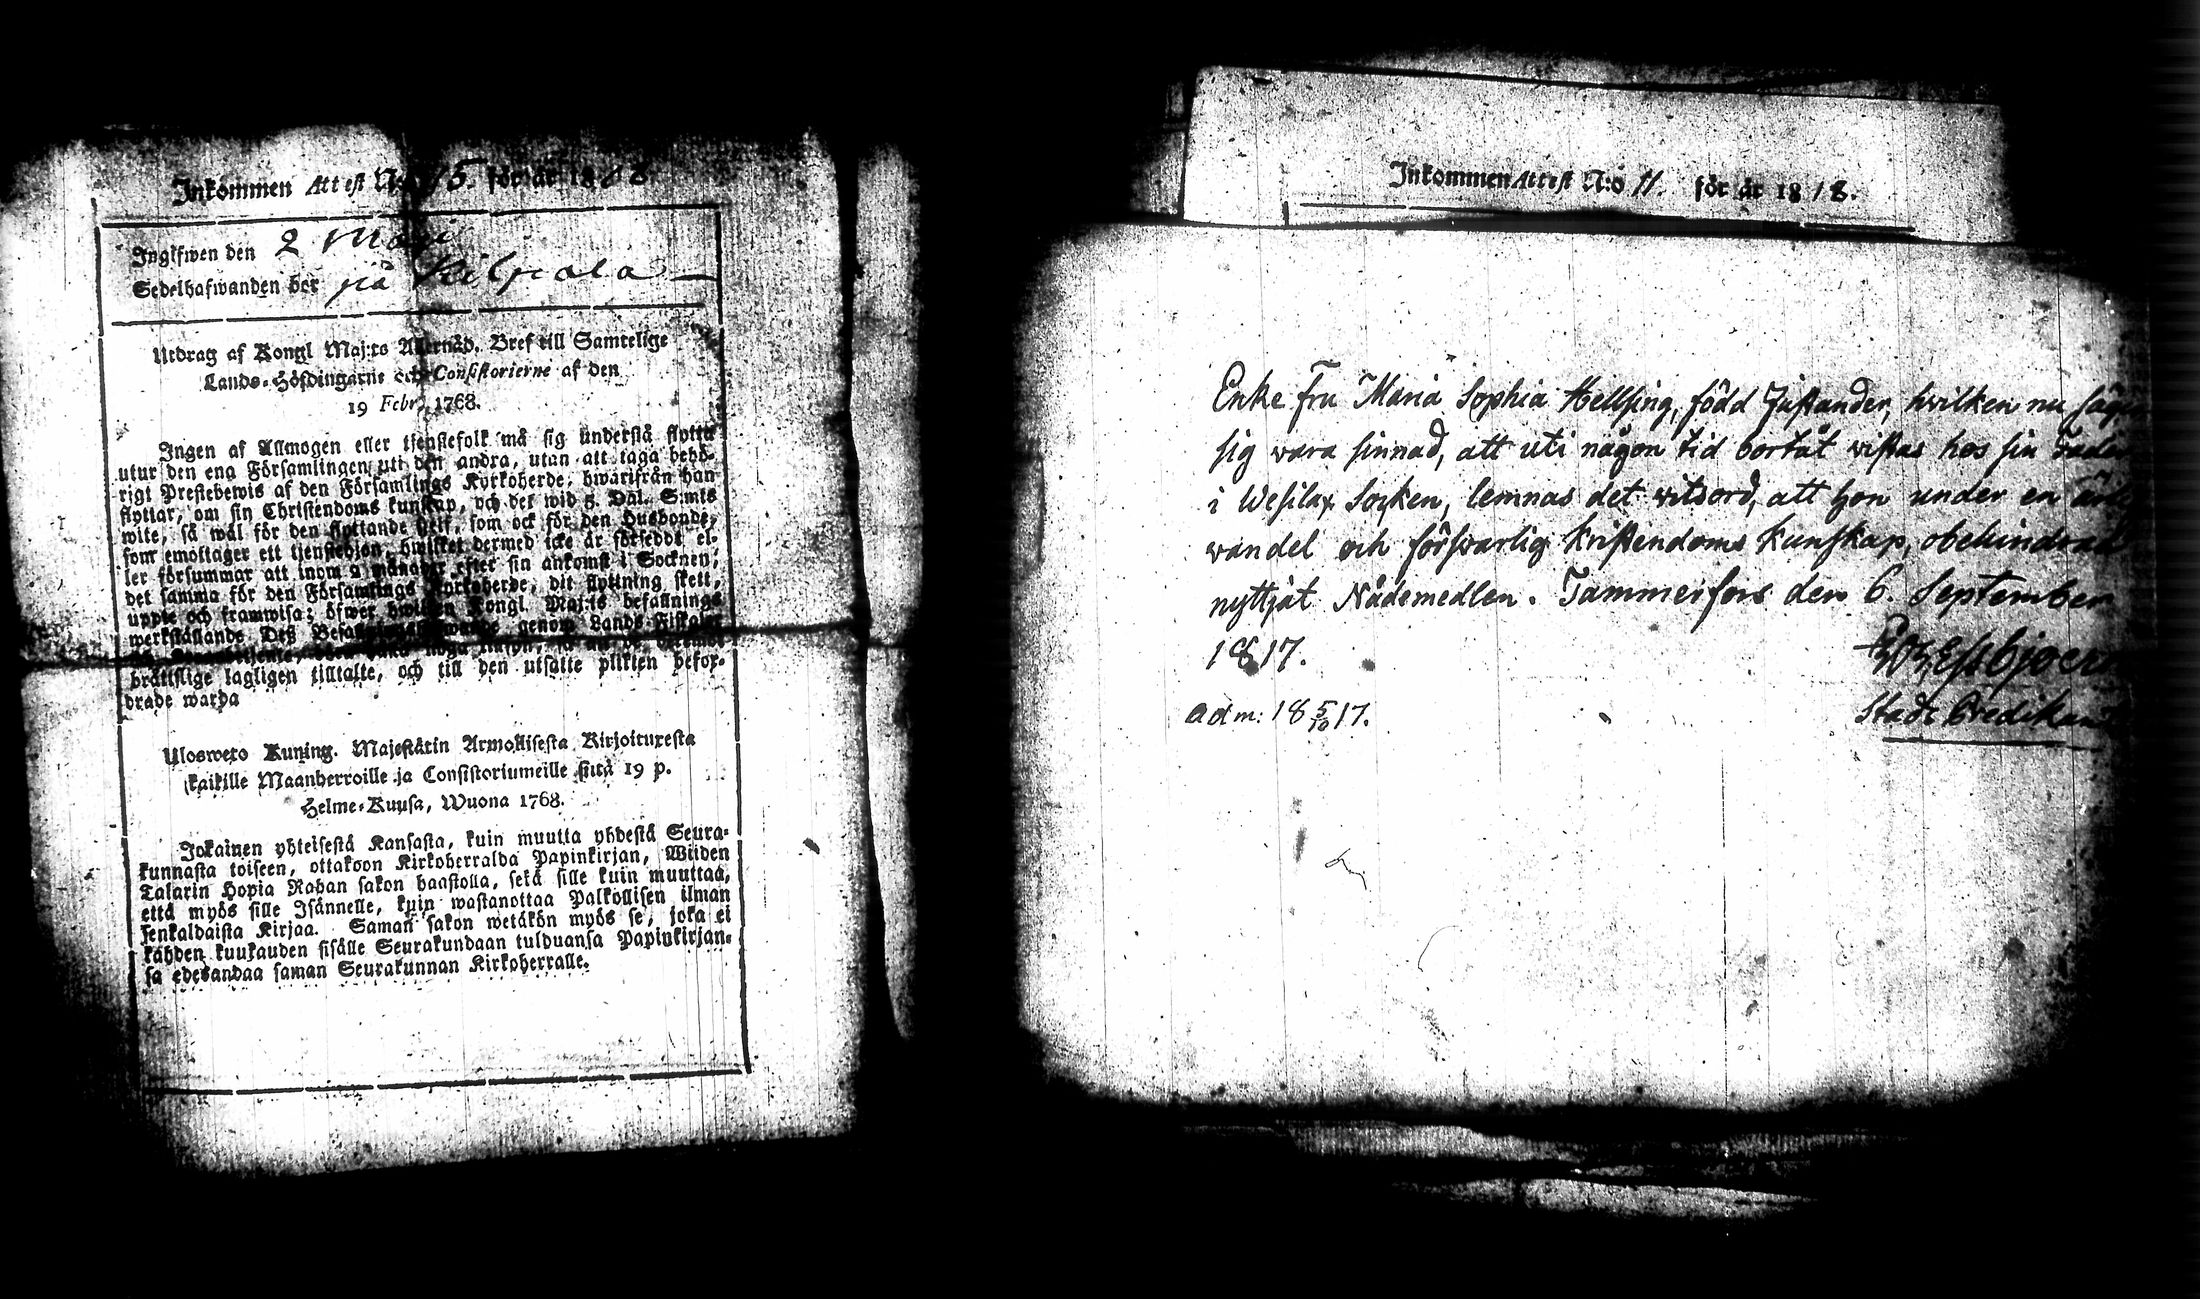 Inkommen Attest N:o 15. för år 1818.
Ingifwen den 2 Maji
Sedelhafwanden bor på Kilpala
Utdrag af Kongl Maj:ts Allernåd. Bref till Samtelige
Lands-Höfdingarne och Consistorierne af den
19 Febr. 1768.
Ingen af Allmogen eller tjenstefolk må sig understå flytta
utur den ena Församlingen uti den andra, utan att taga behö-
rigt Prestebewis af den Församlings Kyrkoherde, hwarifrån han
flyttar, om sin Christendoms kunskap, och det wid 5 Dal. S:mts
wite, så wäl för den flyttande sjelf, som ock för den Husbonde,
som emottager ett tjenstehjon, hwilket dermed icke är försedt el-
ler försummar att inom 2 månader efter sin ankomst i Socknen,
det samma för den Församlings Kyrkoherde, dit flyttning skett,
uppte och framwisa; öfwer hwilken Kongl. Maj:ts befallnings
werkställande Deß genom Lands-Fiskaler
bråttslige lagligen tilltalte, och till den utsatte plikten befor-
drade warda
Ulosweto Kuning. Majestätin Armollisesta Kirjoituxesta
kaikille Maanherroille ja Consistoriumeille siitä 19 p.
Helme-Kuusa, Wuona 1768.
Jokainen yhteisestä Kansasta, kuin muutta yhdestä Seura-
kunnasta toiseen, ottakoon Kirkoherralda Papinkirjan, Wiiden
Talarin Hopia Rahan sakon haastolla, sekä sille kuin muuttaa,
että myös sille Isännelle, kuin wastanottaa Palkollisen ilman
senkaldaista Kirjaa. Saman sakon wetäkön myös se, joka ei
kahden kuukauden sisälle Seurakundaan tulduansa Papinkirjan-
sa edesandaa saman Seurakunnan Kirkoherralle.
Inkommen Attest N:o 11. för år 1818.
Enke Fru Maria Sophia Hellsing, född Jusander, hvilken nu säger
sig vara sinnad, att uti någon tid bortåt vistas hos sin Fader
i Wesilax Socken, lemnas det vitsord, att hon under en
vandel och försvarlig kristendoms kunskap, obehindrad
nyttjat Nådemedlen. Tammerfors den 6. September
1817.
Stads Predikant
adm: 18 5/10 17.